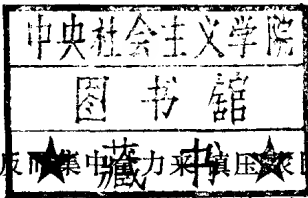 中央社会主义学院
图书馆
★藏书☆
反而集中力来镇压